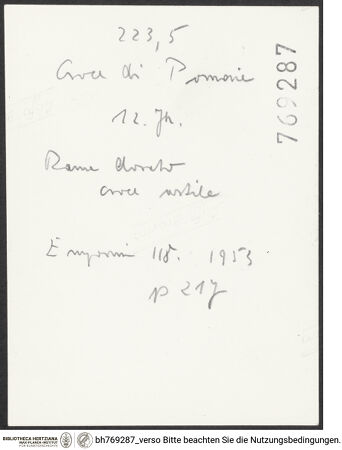 223,5
Croce di Pomaie
12. Jh.
769287
Rame dorato
croce astile
Emporium 118. 1953
p 217
BIBLIOTHECA HERTZIANA
MAX-PLANCK-INSTITUT
FÜR KUNSTGESCHICHTE
bh769287_verso Bitte beachten Sie die Nutzungsbedingungen.